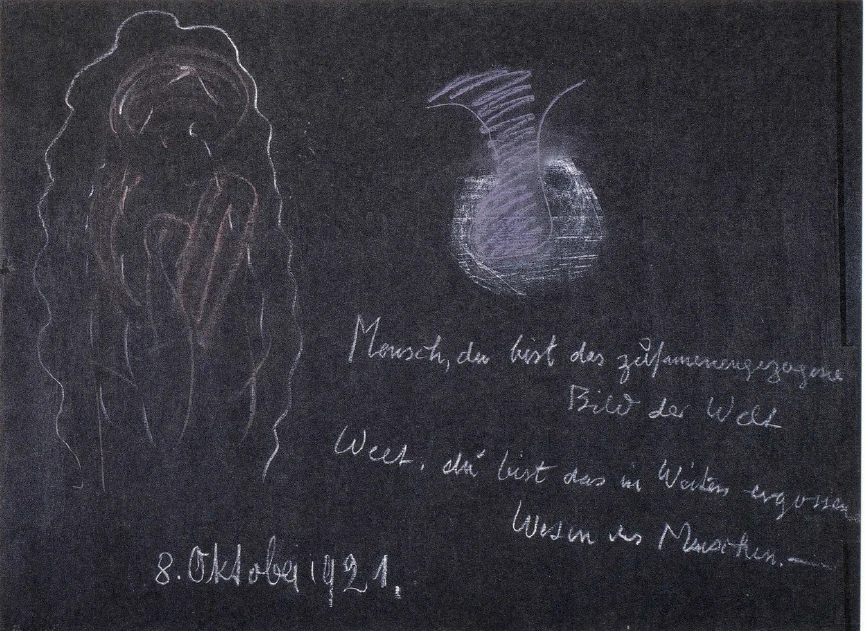 Mensch, du bist das zusammenengezogene
Bild der Welt
Welt, du bist das in Weiten ergossene
Wesen des Menschen. —
8. Oktober 1921.